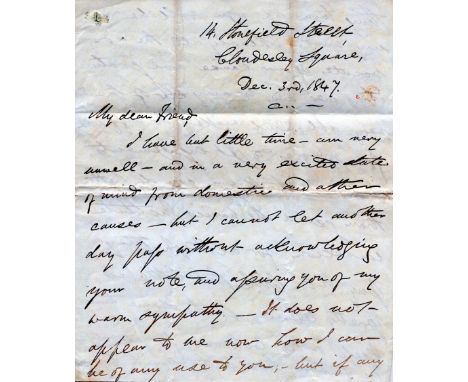 14. Stonefield Street
Cloudesley Square,
Dec. 3rd, 1847.
My dear Friend,
I have but little time - am very
unwell - and in a very excited state
of mind from domestic and other
causes - but I cannot let another
day pass without acknowledging
your note, and assuring you of my
warm sympathy - It does not
appear to me now how I can
be of any use to you, - but if any